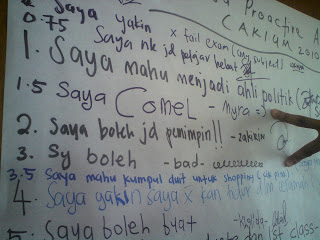 Saya yakin x fail exam (any subject)
Proactive A
CAKLUM 2010
0.75 Saya nk jd pelajar hebat
1. Saya mahu menjadi ahli politik
1.5 Saya COMEL - Myra =)
2. Saya boleh jd pemimpin!! - zakirin
3. Sy boleh - bad-
3.5 Saya mahu kumpul duit untuk shopping
4. Saya yakin saya x kan
5. Saya boleh buat
1st class-